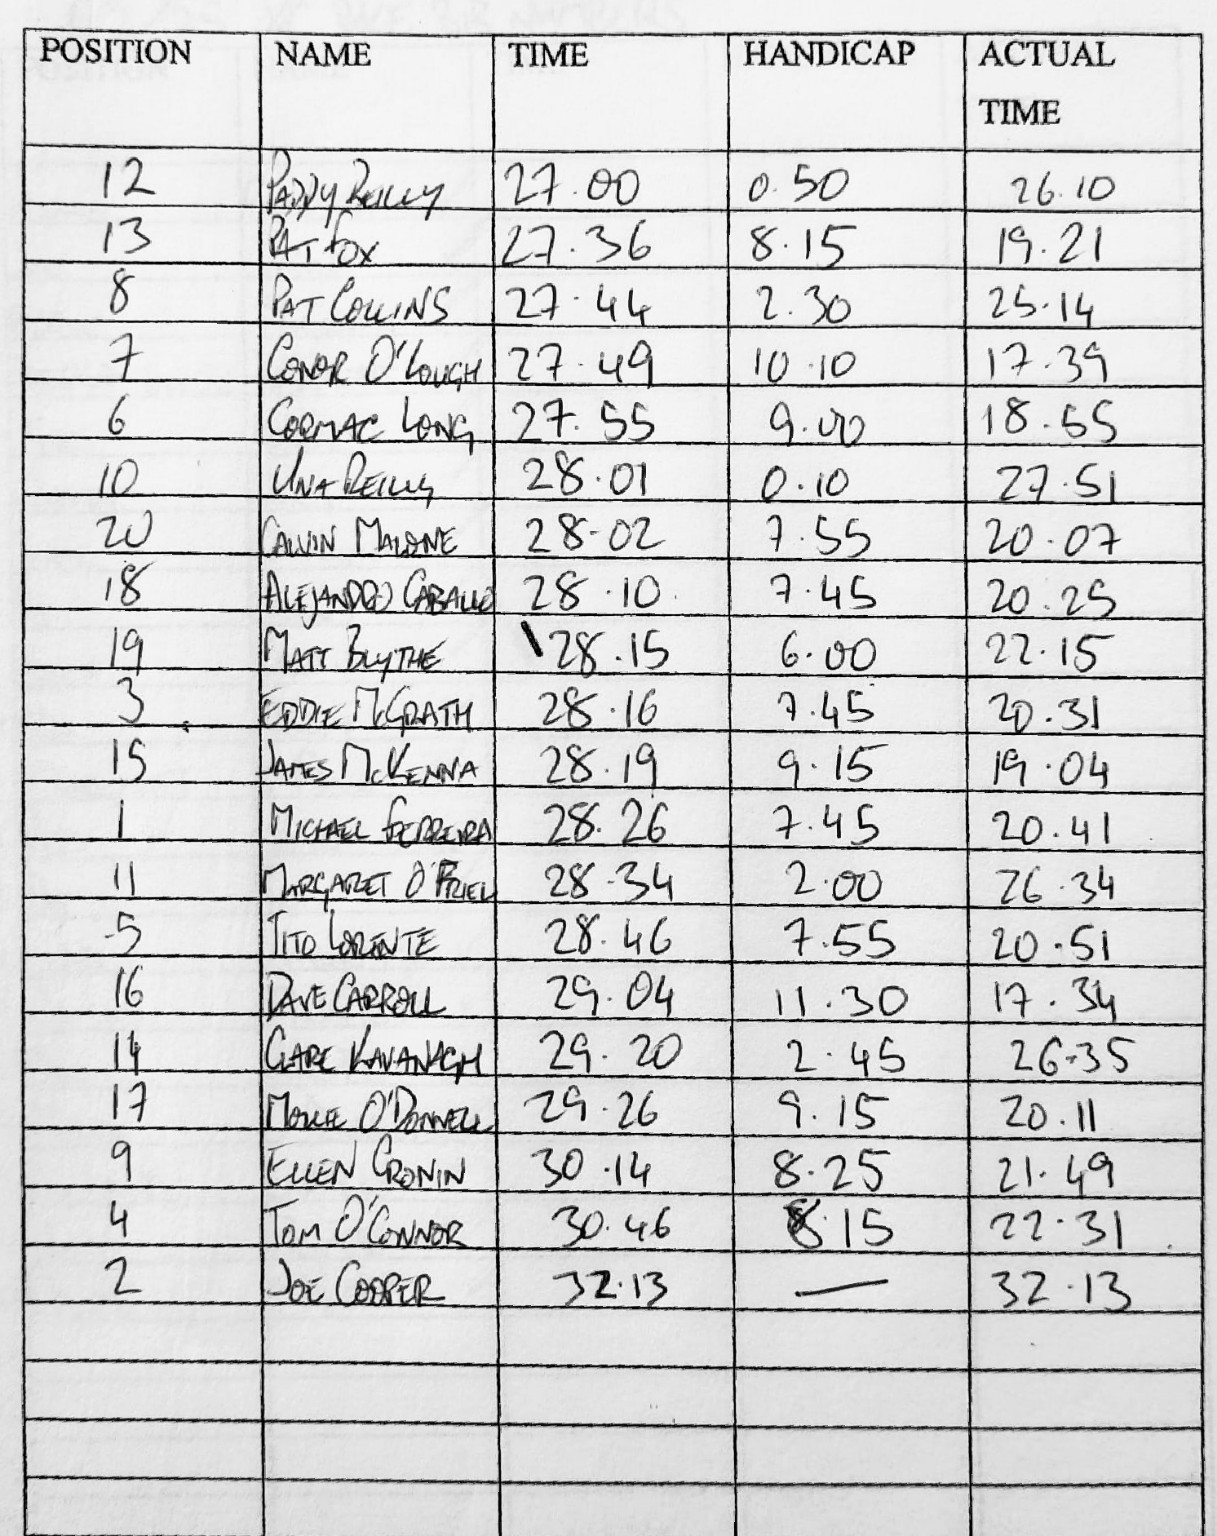 POSITION NAME TIME HANDICAP ACTUAL TIME
12 PADDY REILLY 27.00 0.50 26.10
13 PAT FOX 27.36 8.15 19.21
8 PAT COLLINS 27.44 2.30 25.14
7 CONOR O'LOUGH 27.49 10.10 17.39
6 CORMAC LONG 27.55 9.00 18.55
10 UNA REILLY 28.01 0.10 27.51
20 CALVIN MALONE 28.02 7.55 20.07
18 ALEJANDRO CABALLO 28.10 7.45 20.25
19 MATT BLYTHE 28.15 6.00 22.15
3 EDDIE McGRATH 28.16 7.45 20.31
15 JAMES McKENNA 28.19 9.15 19.04
1 MICHAEL FERREIRA 28.26 7.45 20.41
11 MARGARET O'FRIEL 28.34 2.00 26.34
5 TITO LORENTE 28.46 7.55 20.51
16 DAVE CARROLL 29.04 11.30 17.34
14 CLARE KAVANAGH 29.20 2.45 26.35
17 MOLLIE O'DONNELL 29.26 9.15 20.11
9 ELLEN CRONIN 30.14 8.25 21.49
4 TOM O'CONNOR 30.46 8.15 22.31
2 JOE COOPER 32.13 — 32.13